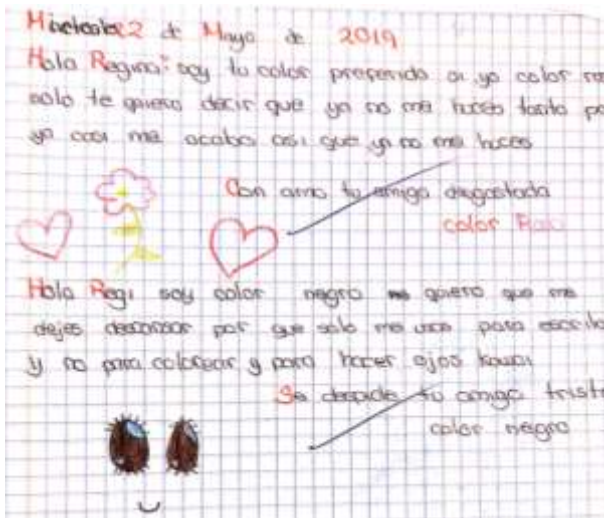 de Mayo de 2019
Hola Regina: soy tu color preferido si yo color
solo te quiero decir que ya no me tanto
ya casi me acabo asi que ya no me
Con amo tu amiga
color Rosa
Hola Regi soy color negro quiero que me
dejes descansar por que solo me usas para
y no para colorear y para hacer ojos kawai
Se despide tu amigo
color negro